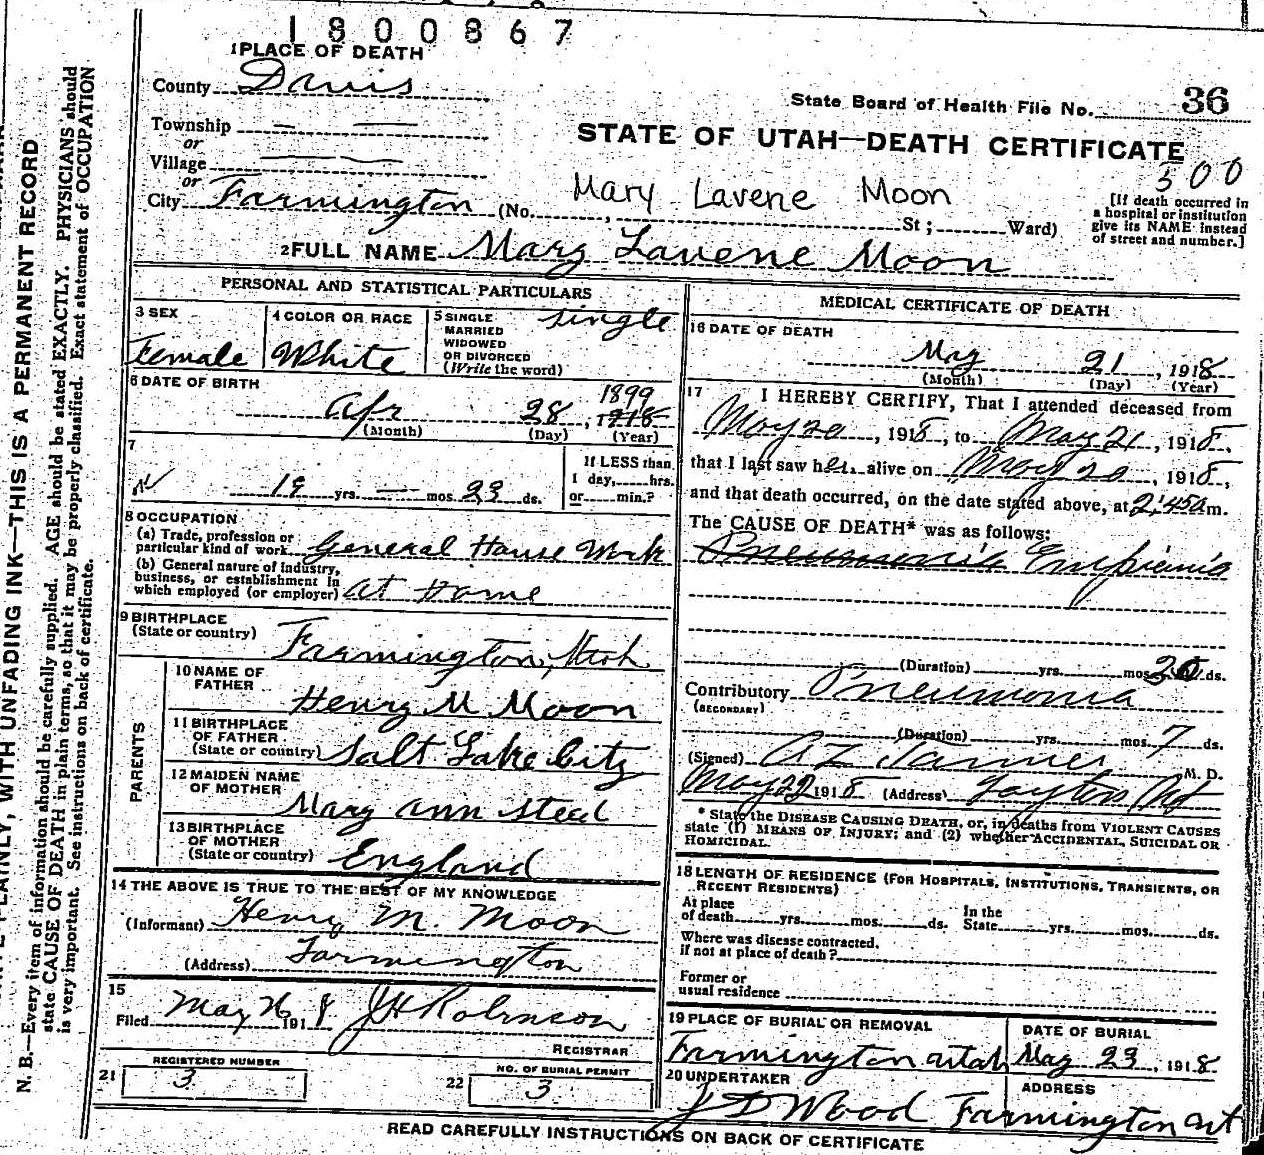 1800867
1 PLACE OF DEATH
County Davis
State Board of Health File No. 36
Township — —
or
STATE OF UTAH—DEATH CERTIFICATE
Village — —
or
500
City Farmington (No. , St ; Ward)
Mary Lavene Moon
[If death occurred in
a hospital or institution
give its NAME instead
of street and number.]
2 FULL NAME Mary Lavene Moon
PERSONAL AND STATISTICAL PARTICULARS
3 SEX
Female
4 COLOR OR RACE
White
5 SINGLE
MARRIED
WIDOWED
OR DIVORCED
(Write the word)
single
6 DATE OF BIRTH
1899
Apr 28, 1918
(Month) (Day) (Year)
7
19 yrs. — mos. 23 ds.
If LESS than
1 day, hrs.
or min.?
8 OCCUPATION
(a) Trade, profession or
particular kind of work General House Work
(b) General nature of industry,
business, or establishment in
which employed (or employer) at Home
9 BIRTHPLACE
(State or country) Farmington, Utah
PARENTS
10 NAME OF
FATHER Henry M Moon
11 BIRTHPLACE
OF FATHER
(State or country) Salt Lake City
12 MAIDEN NAME
OF MOTHER Mary Ann Steed
13 BIRTHPLACE
OF MOTHER
(State or country) England
14 THE ABOVE IS TRUE TO THE BEST OF MY KNOWLEDGE
(Informant) Henry M. Moon
(Address) Farmington
15
Filed May 26 1918 J H Robinson
REGISTRAR
21 REGISTERED NUMBER
3
22 NO. OF BURIAL PERMIT
3
MEDICAL CERTIFICATE OF DEATH
16 DATE OF DEATH
May 21, 1918
(Month) (Day) (Year)
17 I HEREBY CERTIFY, That I attended deceased from
May 20, 1918, to May 21, 1918,
that I last saw her alive on May 20, 1918,
and that death occurred, on the date stated above, at 2:45 a m.
The CAUSE OF DEATH* was as follows:
Pneumonia Empiemia
(Duration) yrs. mos. 20 ds.
Contributory Pneumonia
(SECONDARY)
(Duration) yrs. mos. 7 ds.
(Signed) A Z Tanner M. D.
May 22 1918 (Address) Layton Ut
* State the DISEASE CAUSING DEATH, or, in deaths from VIOLENT CAUSES
state (1) MEANS OF INJURY; and (2) whether ACCIDENTAL, SUICIDAL OR
HOMICIDAL.
18 LENGTH OF RESIDENCE (FOR HOSPITALS, INSTITUTIONS, TRANSIENTS, OR
RECENT RESIDENTS)
At place
of death yrs. mos. ds.
In the
State yrs. mos. ds.
Where was disease contracted,
if not at place of death?
Former or
usual residence
19 PLACE OF BURIAL OR REMOVAL
Farmington Utah
DATE OF BURIAL
May 23, 1918
20 UNDERTAKER
J D Wood
ADDRESS
Farmington Ut
READ CAREFULLY INSTRUCTIONS ON BACK OF CERTIFICATE
PLAINLY, WITH UNFADING INK—THIS IS A PERMANENT RECORD
N. B.—Every item of information should be carefully supplied. AGE should be stated EXACTLY. PHYSICIANS should
state CAUSE OF DEATH in plain terms, so that it may be properly classified. Exact statement of OCCUPATION
is very important. See instructions on back of certificate.